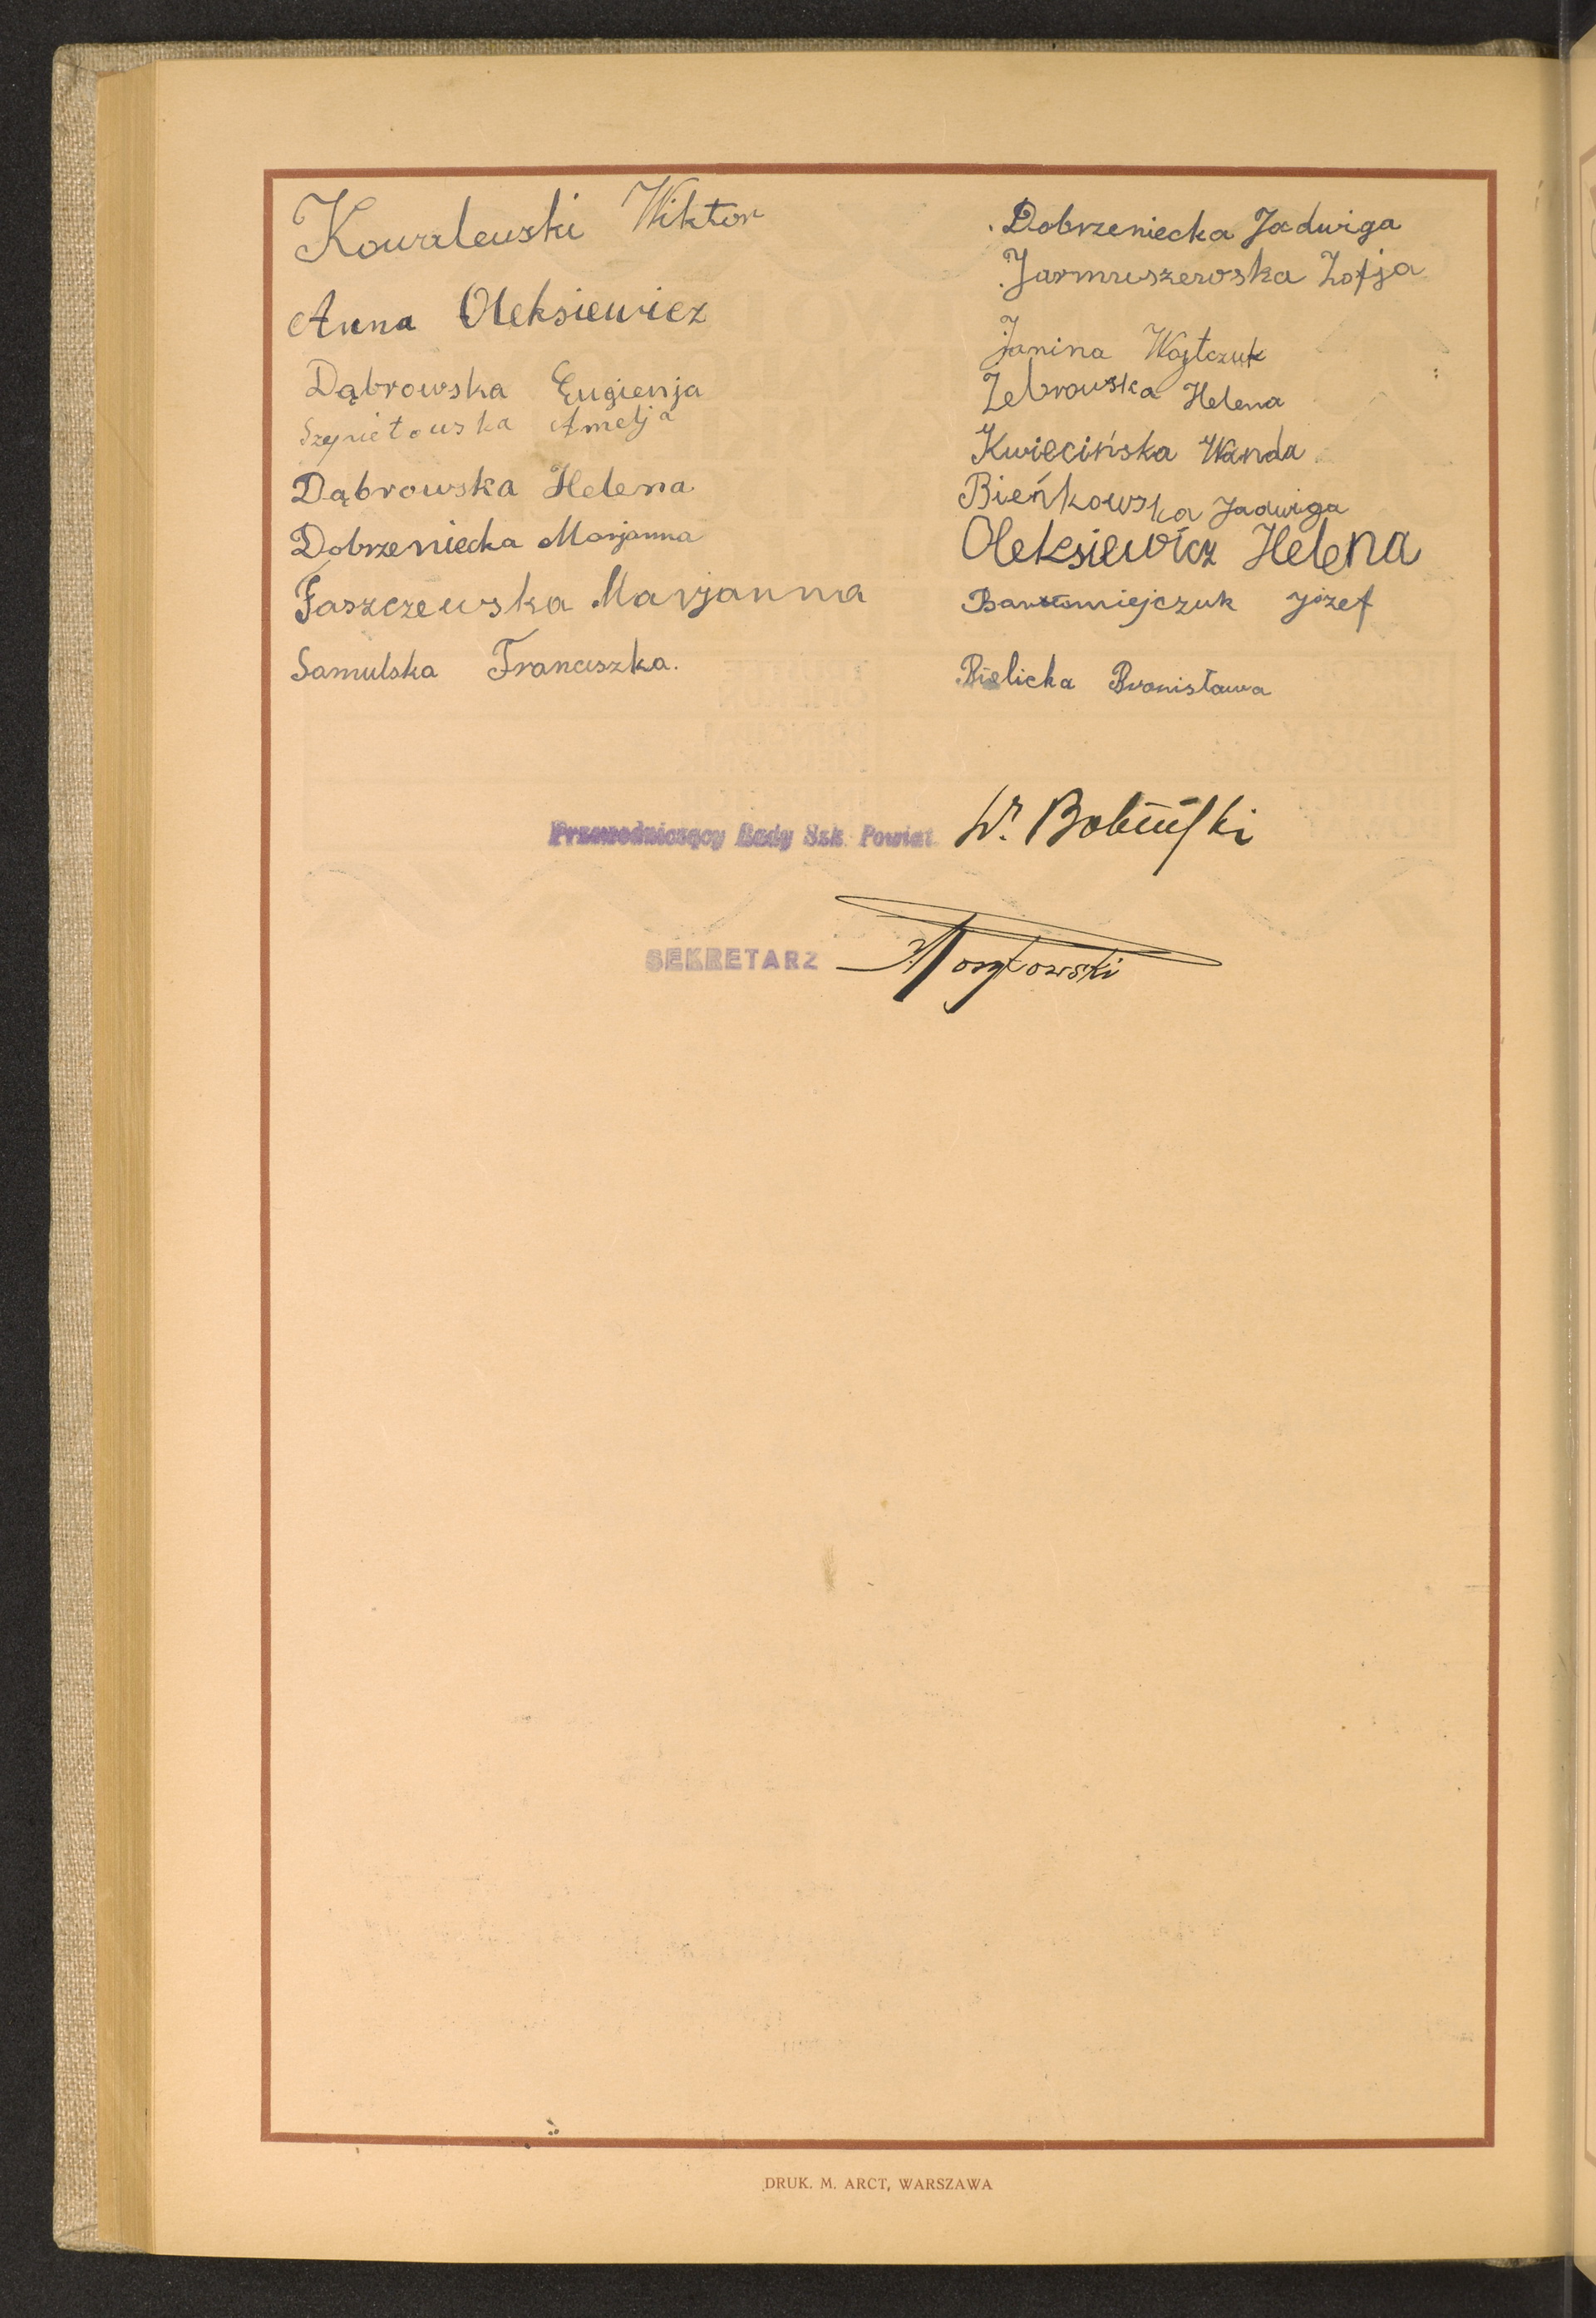 Kowalewski Wiktor
Anna Oleksiewicz
Dąbrowska Eugienja
Amelja
Dąbrowska Helena
Dobrzeniecka Marjanna
Faszczewska Marjanna
Samulska Franciszka.
Dobrzeniecka Jadwiga
Jarmuszewska Zofja
Janina Wojtczuk
Żebrowska Helena
Kwiecińska Wanda
Bieńkowska Jadwiga
Oleksiewicz Helena
Bartłomiejczuk Józef
Bielicka Bronisława
Przewodniczący Rady Szk. Powiat. W. Bobiński
SEKRETARZ
DRUK. M. ARCT, WARSZAWA